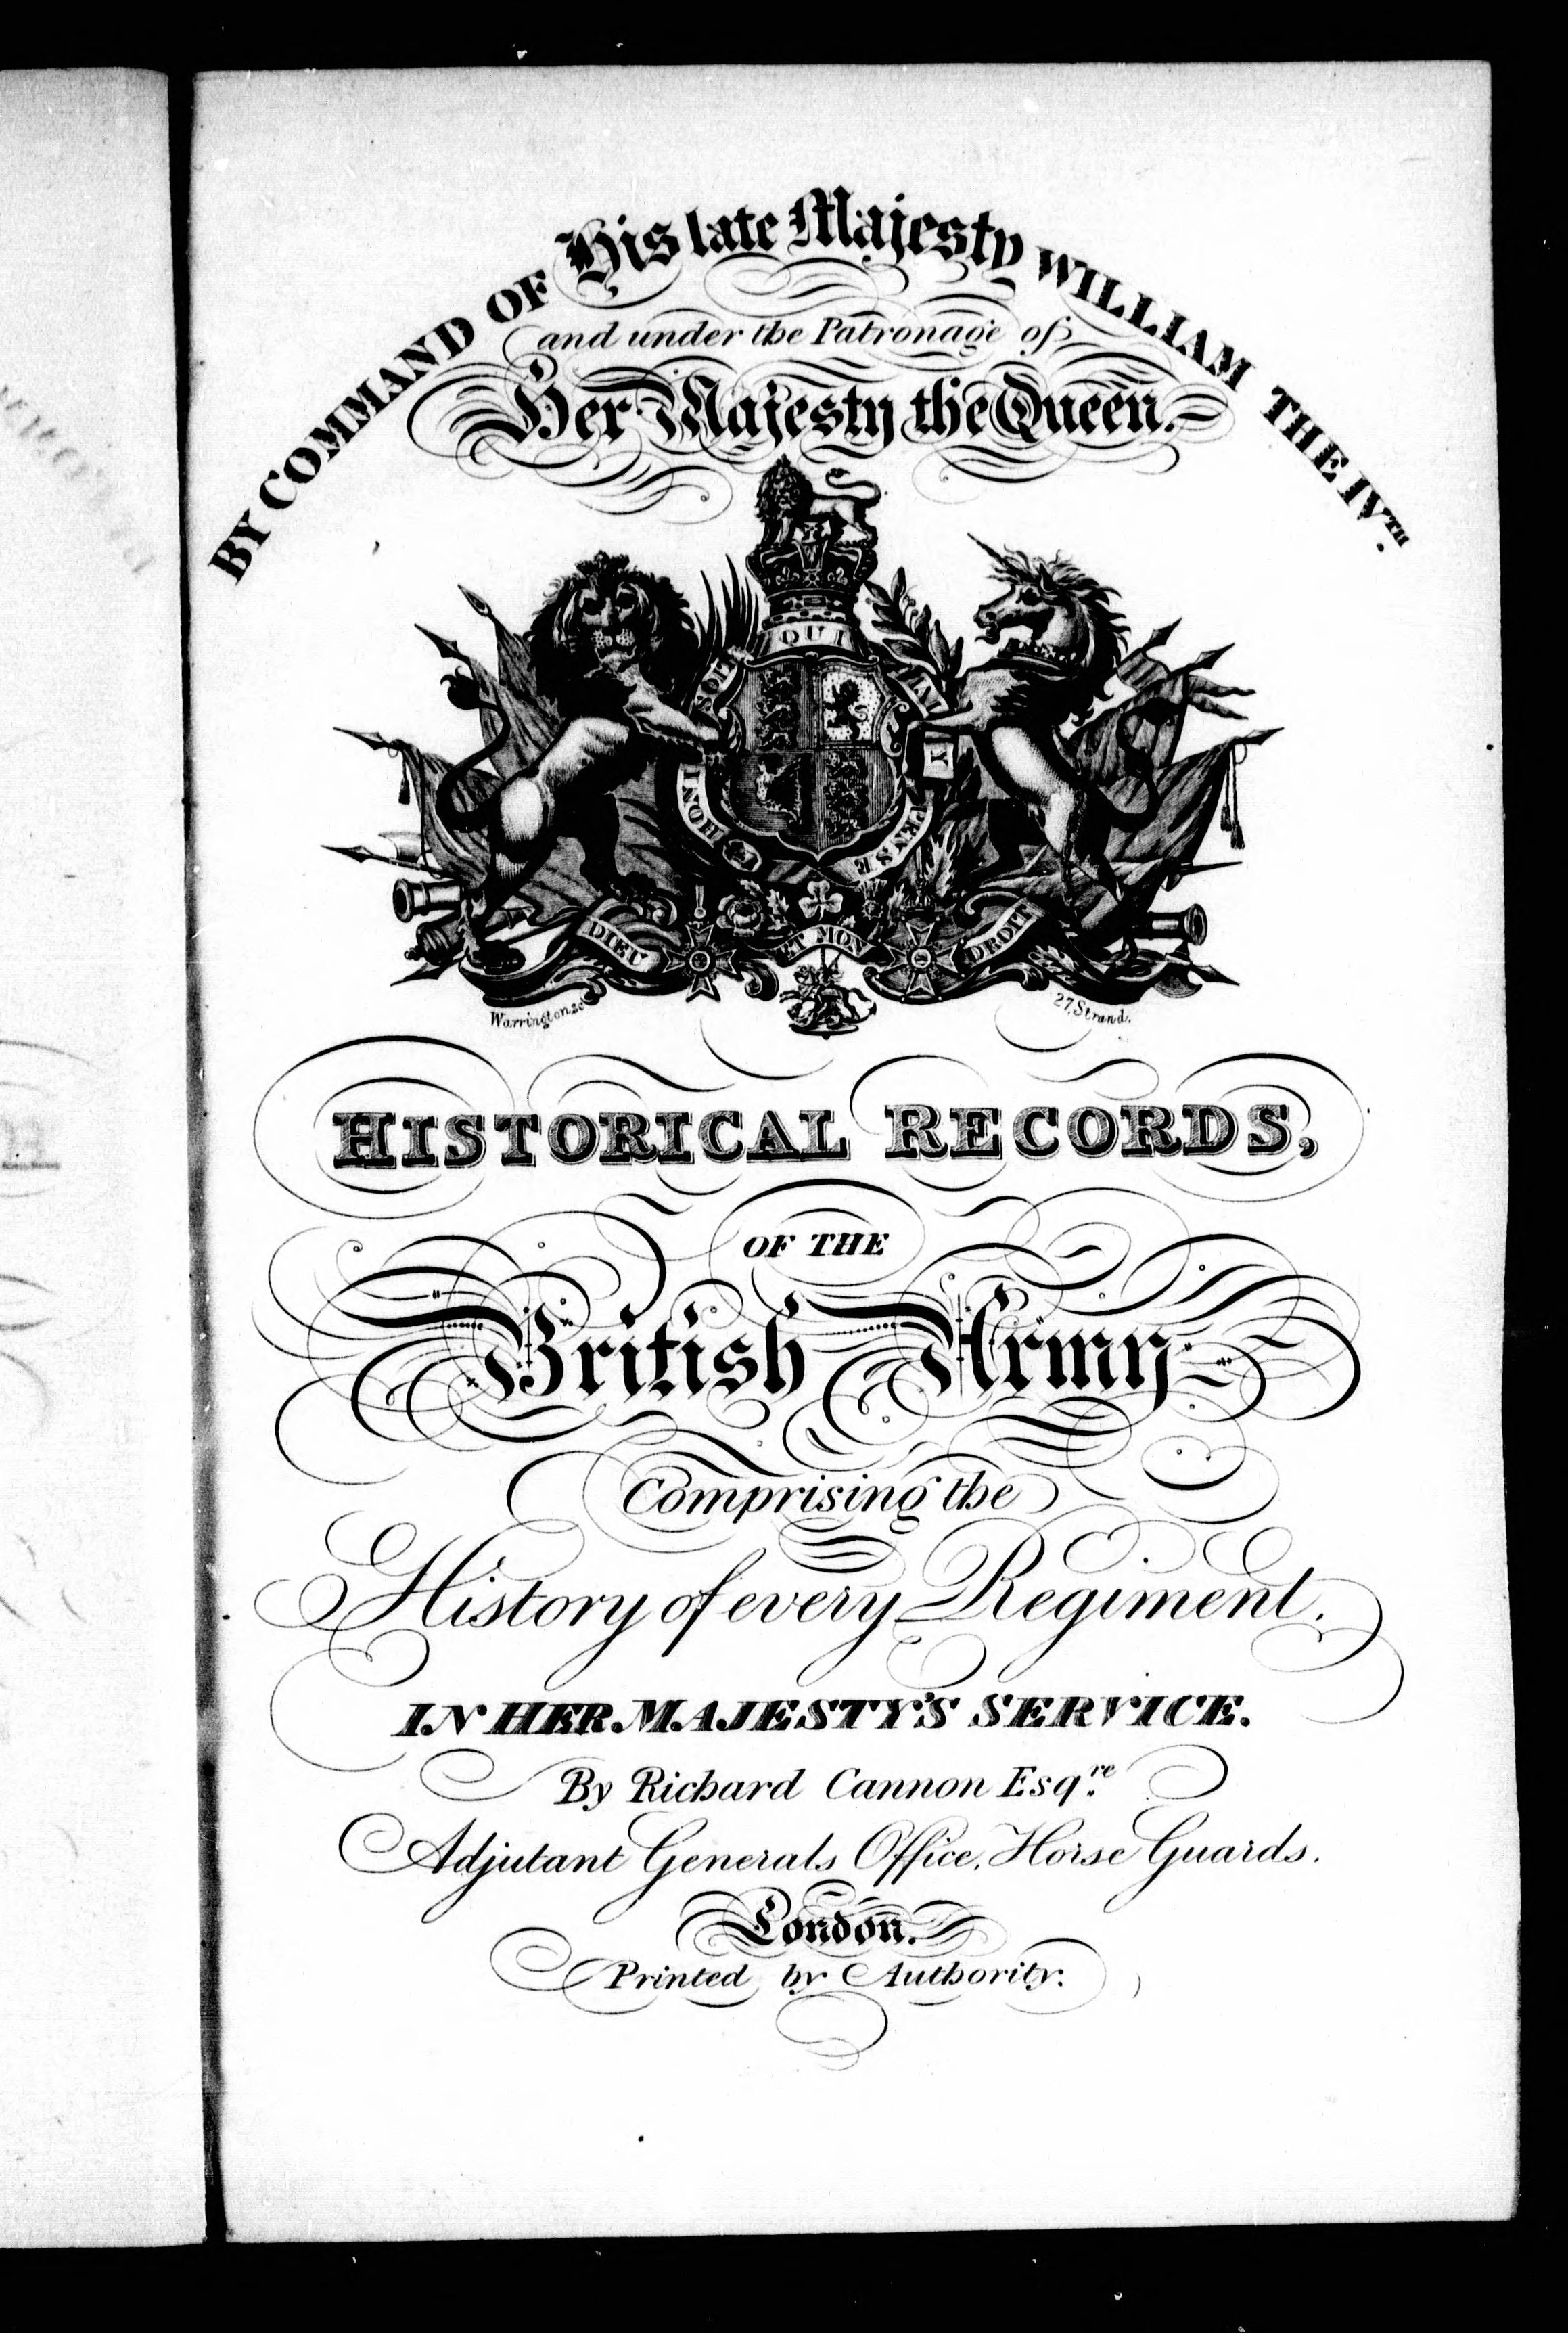 BY COMMAND OF His late Majesty WILLIAM THE IVTH.
and under the Patronage of
Her Majesty the Queen.
HONI SOIT QUI MAL Y PENSE
DIEU ET MON DROIT
Warrington sc. 27, Strand.
HISTORICAL RECORDS,
OF THE
British Army
Comprising the
History of every Regiment
IN HER MAJESTY'S SERVICE.
By Richard Cannon Esqre.
Adjutant Generals Office, Horse Guards.
London.
Printed by Authority.